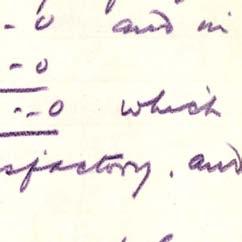 - 0 and in
- 0
- - 0 which
sfactory, and